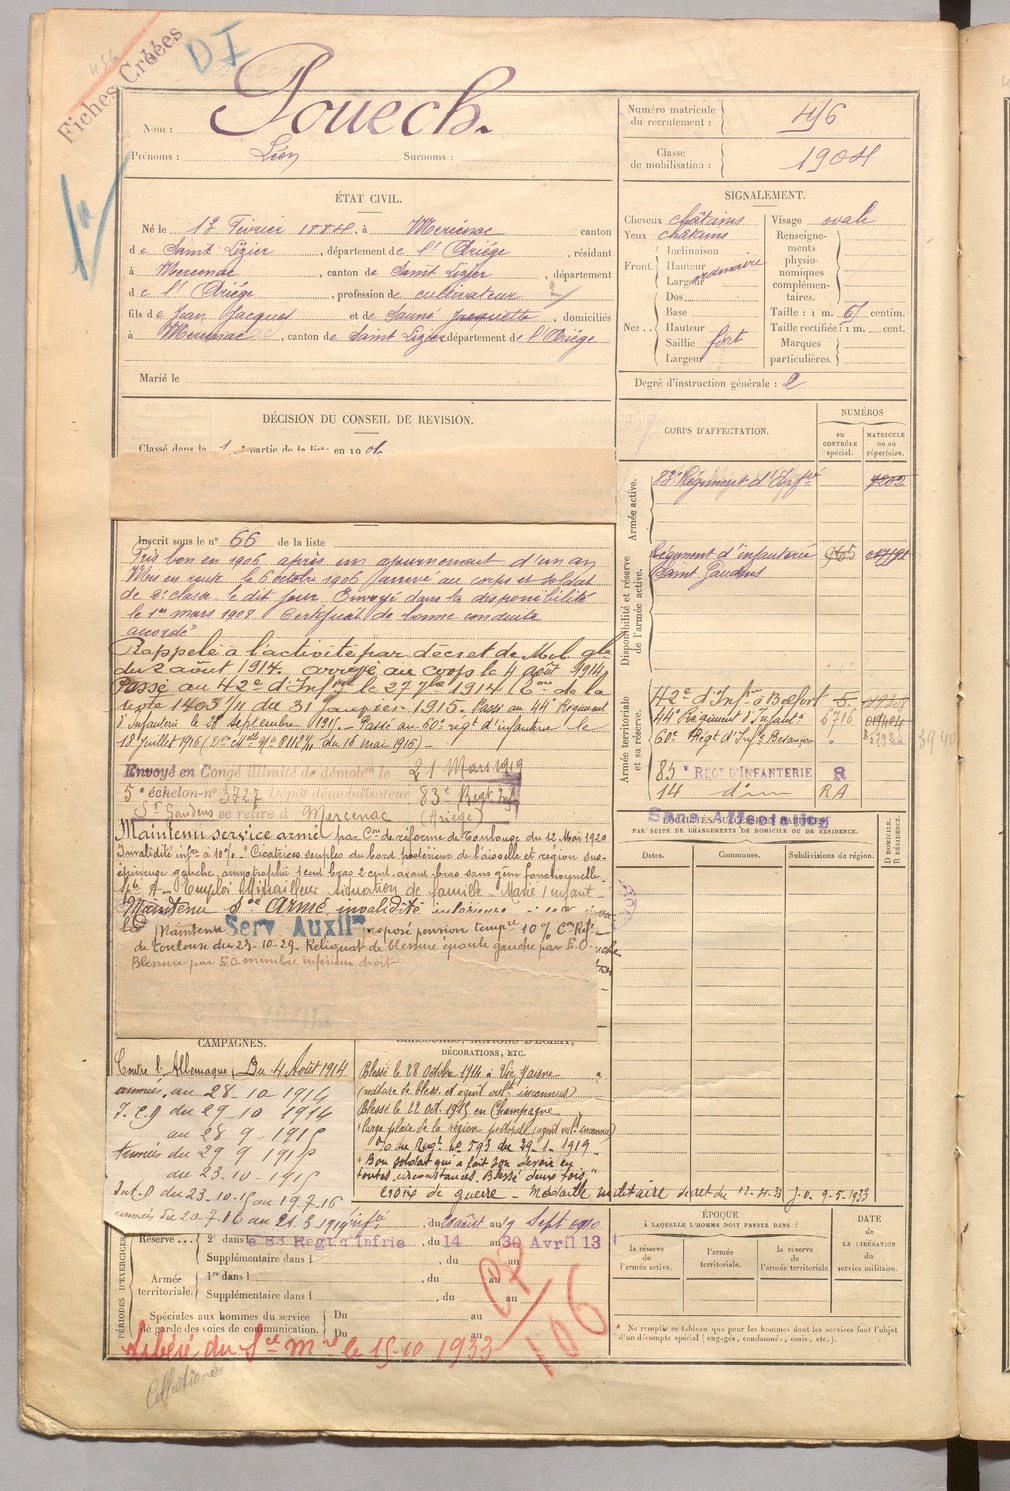 Fiches Créées
D I
Nom : Pouech.
Prénoms : Léon Surnoms :
Numéro matricule du recrutement : 446
Classe de mobilisation : 1904
ÉTAT CIVIL.
Né le 13 Février 1884, à Mercenac canton
de Saint Lizier, département de l'Ariège, résidant
à Mercenac, canton de Saint Lizier, département
de l'Ariège, profession de cultivateur
fils de Jean Jacques et de Sauné Jacquette, domiciliés
à Mercenac, canton de Saint Lizier département de l'Ariège
Marié le
SIGNALEMENT.
Cheveux châtains
Yeux châtains
Front. Inclinaison
Hauteur ordinaire
Largeur
Nez.. Dos
Base
Hauteur
Saillie fort
Largeur
Visage ovale
Renseigne-
ments
physio-
nomiques
complémen-
taires.
Taille : 1 m. 61 centim.
Taille rectifiée : 1 m. cent.
Marques
particulières.
Degré d'instruction générale : 2
DÉCISION DU CONSEIL DE REVISION.
Classé dans la 1 partie de la liste en 1906
Inscrit sous le n° 66 de la liste
Pris bon en 1906 après un ajournement d'un an
Mis en route le 6 octobre 1906 arrivé au corps et soldat
de 2e classe le dit jour Envoyé dans la disponibilité
le 1er mars 1908 Certificat de bonne conduite
accordé
Rappelé à l'activité par décret de Mob. gle
du 2 août 1914. arrivé au corps le 4 août 1914
Passé au 42e d'Infrie le 27 7bre 1914 (Con de la
note 1403 /11 du 31 janvier 1915. Passé au 44e Régiment
d'Infanterie le 28 septembre 1915. Passé au 60e régt d'infanterie le
18 juillet 1916 (Don Mlle n° 8112 /11 du 18 mai 1916) -
Envoyé en Congé illimité de démobon le 21 Mars 1919
5e échelon n° 3727 Dépôt démobilisateur 83e Régt Inf
St Gaudens se retire à Mercenac (Ariège)
Maintenu service armé par Con de réforme de Toulouse du 12 Mai 1920
Invalidité infre à 10%. "Cicatrices souples du bord postérieur de l'aisselle et région sus-
épineuse gauche, amyotrophie 1 cent. bras 2 cent. avant-bras sans gêne fonctionnelle.
A - Emploi Mitrailleur Situation de famille - Marié 1 enfant
Maintenu Sce Armé invalidité inférieure
Maintenu Serv Auxilre proposé pension tempre 10% Con Réf.
de Toulouse du 23-10-29. Reliquat de blessure épaule gauche par E.O.
Blessure par E.O. membre inférieur droit
CORPS D'AFFECTATION.
NUMÉROS
au CONTRÔLE spécial.
MATRICULE ou au répertoire.
Armée active.
83e Régiment d'Infrie 7202
Disponibilité et réserve de l'armée active.
Régiment d'infanterie
Saint Gaudens
Armée territoriale et sa réserve.
42e d'Infrie à Belfort
44e Régiment d'Infante 5716
60e Régt d'Infie Besançon "
3940
83e RÉGt D'INFANTERIE R
14 d° RA
Sans Affectation
LOCALITÉS SUCCESSIVES HABITÉES
PAR SUITE DE CHANGEMENTS DE DOMICILE OU DE RÉSIDENCE.
Dates. Communes. Subdivisions de région. D DOMICILE. R RÉSIDENCE.
CAMPAGNES.
Contre l'Allemagne, Du 4 Août 1914
armées, au 28-10-1914
I.C.D du 29-10-1914
au 28-9-1915
Armées du 29 9-1915
au 23-10-1915
Int. D du 23.10.15 au 19.7.16
armées du 20-7-16 au 21.3.1919
DÉCORATIONS, ETC.
Blessé le 28 octobre 1914 à Vic s/aisne
(nature de bless. et agent vult inconnus)
Blessé le 22 oct. 1915 en Champagne
(large plaie de la région pectorale (agent vult. inconnu)
O/o du Régt n° 593 du 29-1-1919
"Bon soldat qui a fait son devoir en
toutes circonstances. Blessé deux fois"
Croix de guerre - Médaille militaire décret du 12-4-33 J.O. 9-5-1933
PÉRIODES D'EXERCICES
infie, du août au 9 Sept 1910
Réserve ... 2e dans le 83 Régt d'Infrie, du 14 au 30 Avril 13
Supplémentaire dans l , du au
Armée territoriale. 1re dans l , du au
Supplémentaire dans l , du au
Spéciales aux hommes du service Du au
de garde des voies de communication. Du au
Libéré du Sce Mre le 15-10 1933
C7/106
Collationné
ÉPOQUE
À LAQUELLE L'HOMME DOIT PASSER DANS :
la réserve de l'armée active. l'armée territoriale. la réserve de l'armée territoriale.
DATE
de
LA LIBÉRATION
du
service militaire.
* Ne remplir ce tableau que pour les hommes dont les services font l'objet
d'un décompte spécial (engagés, condamnés, omis, etc.).